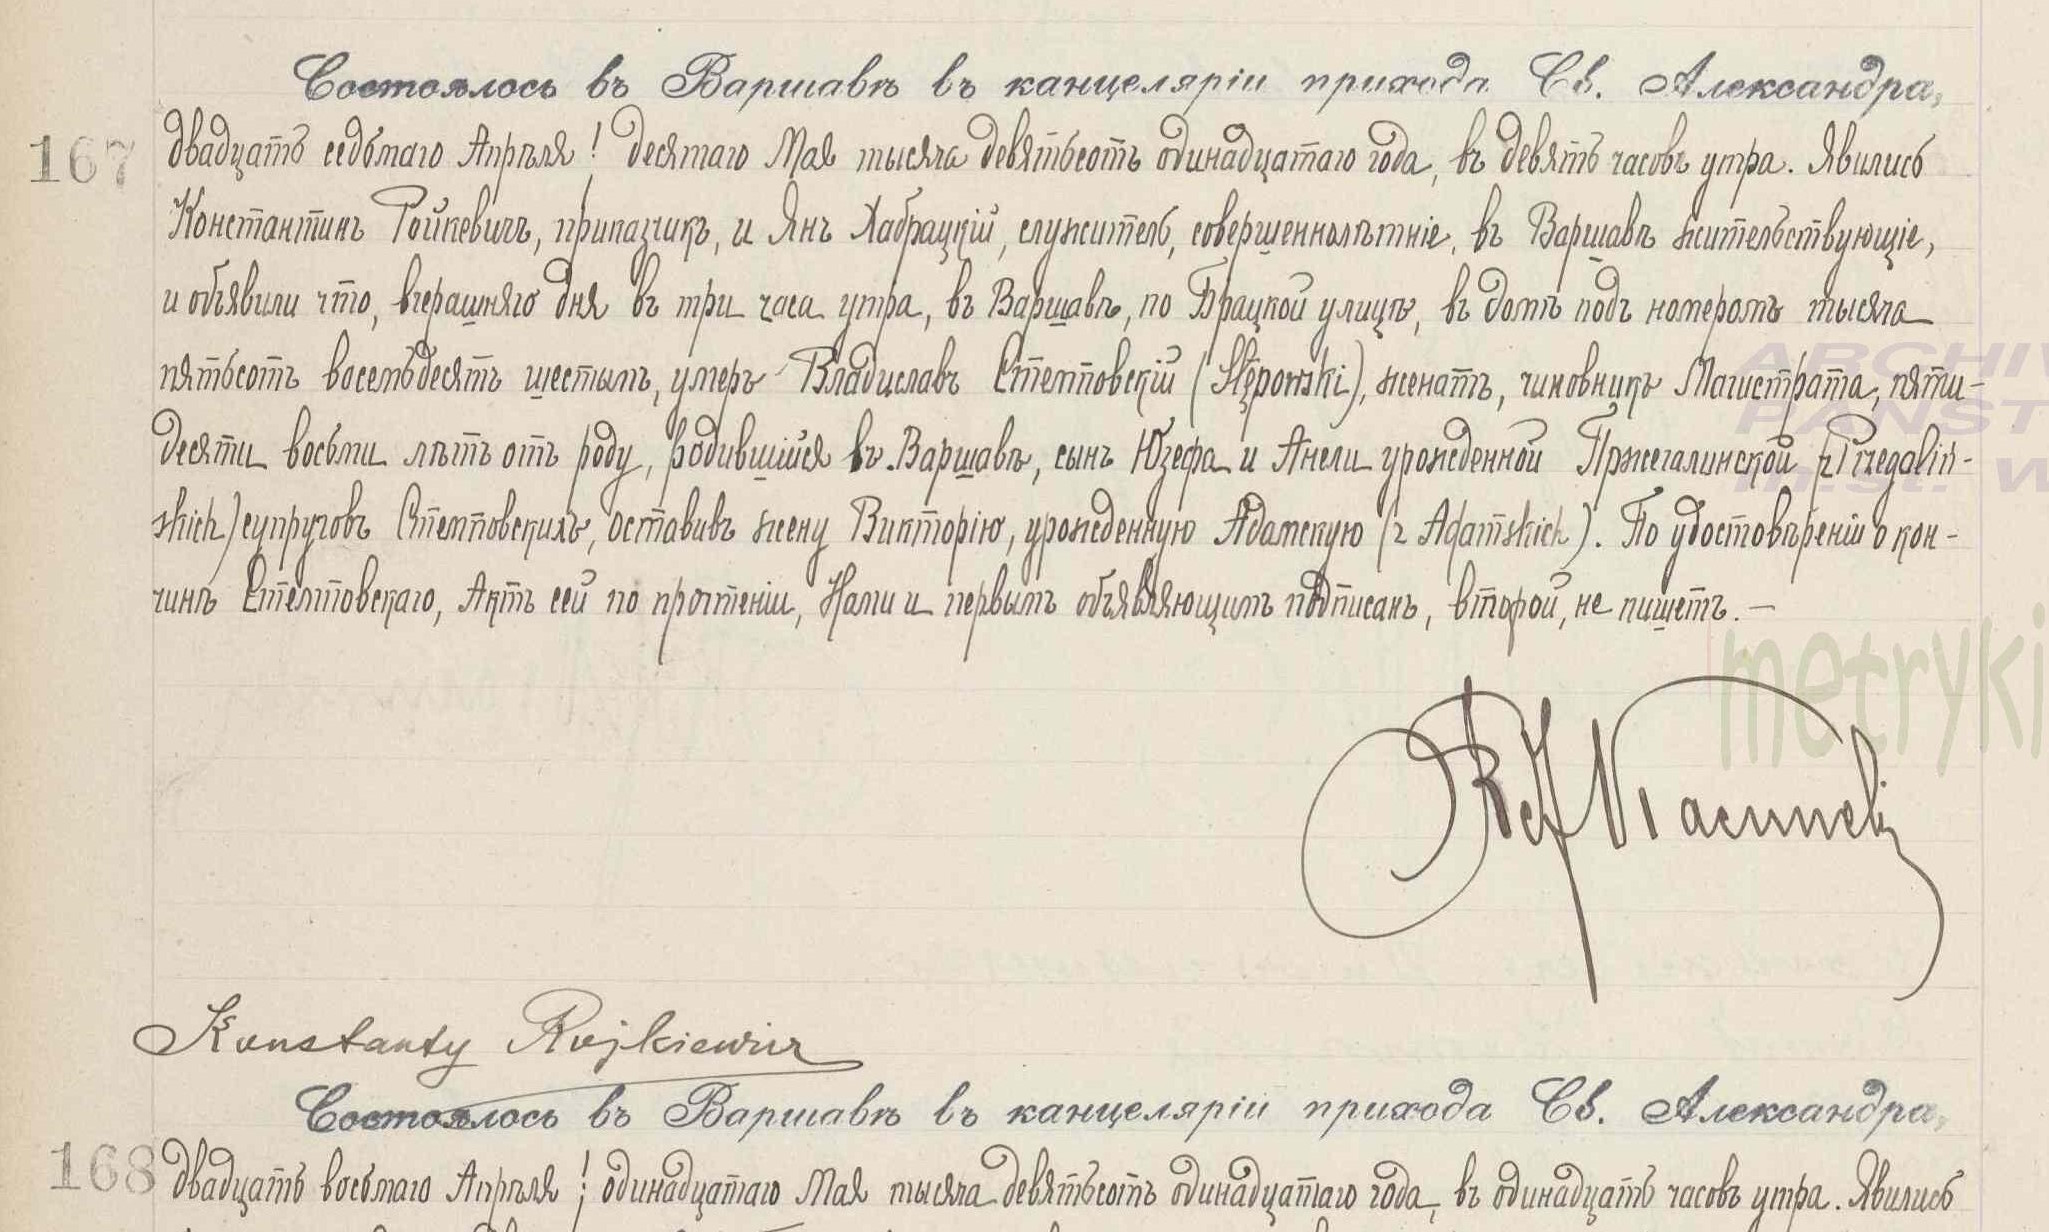 Состоялось въ Варшавѣ въ канцеляріи прихода Св. Александра,
167
двадцать седьмаго Апрѣля / десятаго Мая тысяча девятьсотъ одинадцатаго года, въ девять часовъ утра. Явились
Константинъ Ройкевичъ, приказчикъ, и Янъ Хабрацкій, служитель, совершеннолѣтніе, въ Варшавѣ жительствующіе,
и объявили что, вчерашняго дня въ три часа утра, въ Варшавѣ, по Брацкой улицѣ, въ домѣ подъ номеромъ тысяча
пятьсотъ восемьдесятъ шестымъ, умеръ Владиславъ Стемповскій (Stępowski), женатъ, чиновникъ Магистрата, пяти-
десяти восьми лѣтъ отъ роду, родившійся въ Варшавѣ, сынъ Юзефа и Анели урожденной Пржегалинской (z Przegaliń-
skich) супруговъ Стемповскихъ, оставивъ жену Викторію, урожденную Адамскую (z Adamskich). По удостовѣреніи о кон-
чинѣ Стемповскаго, Актъ сей по прочтеніи, Нами и первымъ объявляющимъ подписанъ, второй, не пишетъ. —
metryki
Konstanty Rojkiewicz
Состоялось въ Варшавѣ въ канцеляріи прихода Св. Александра,
168
двадцать восьмаго Апрѣля / одинадцатаго Мая тысяча девятьсотъ одинадцатаго года, въ одинадцать часовъ утра. Явились